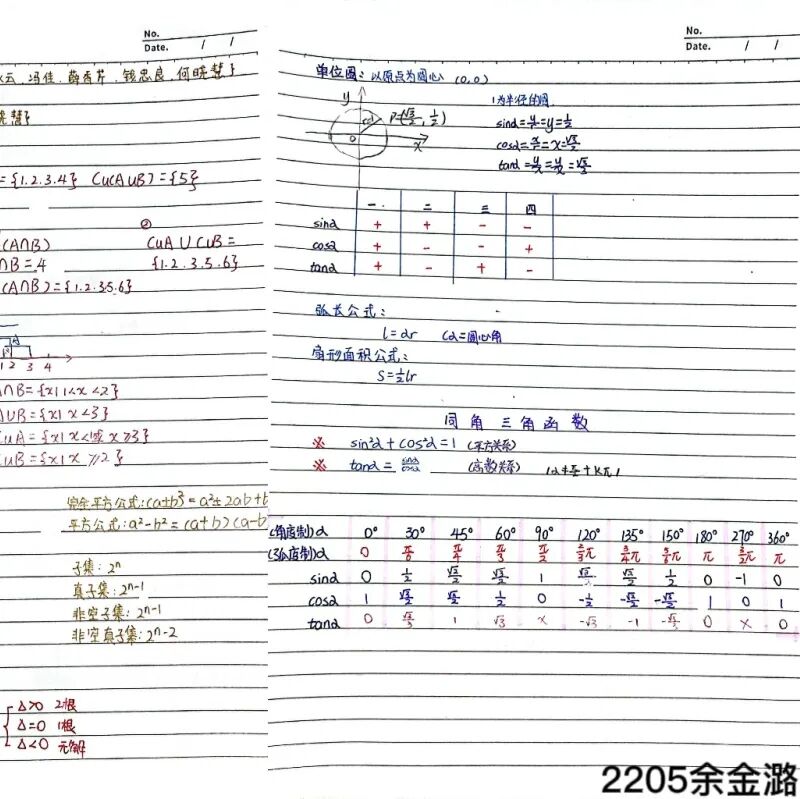 No.
Date. / /
云、冯佳、薛香芹、钱忠良、何晓慧}
晓慧}
={1.2.3.4} Cu(A∪B)={5}
②
(A∩B) CuA∪CuB=
∩B=4 {1.2.3.5.6}
(A∩B)={1.2.3.5.6}
1 2 3 4
∩B={x|1<x<2}
∪B={x|x<3}
uA={x|x<1或x≥3}
uB={x|x≥2}
完全平方公式:(a±b)²=a²±2ab+b
平方公式:a²-b²=(a+b)(a-b
子集:2ⁿ
真子集:2ⁿ-1
非空子集:2ⁿ-1
非空真子集:2ⁿ-2
△>0 2根
△=0 1根
△<0 无解
No.
Date. / /
单位圆:以原点为圆心 (0,0)
1为半径的圆
y
P(√3/2, 1/2)
x
0
sinα=y/r=y=1/2
cosα=x/r=x=√3/2
tanα=y/x=y/x=√3/3
一 二 三 四
sinα + + - -
cosα + - - +
tanα + - + -
弧长公式:
l=αr (α=圆心角
扇形面积公式:
S=½lr
同角三角函数
※ sin²α+cos²α=1 (平方关系)
※ tanα=sinα/cosα (商数关系) (α≠π/2+kπ)
(角度制)α 0° 30° 45° 60° 90° 120° 135° 150° 180° 270° 360°
(弧度制)α 0 π/6 π/4 π/3 π/2 2/3π 3/4π 5/6π π 3/2π π
sinα 0 1/2 √2/2 √3/2 1 √3/2 √2/2 1/2 0 -1 0
cosα 1 √3/2 √2/2 1/2 0 -1/2 -√2/2 -√3/2 1 0 1
tanα 0 √3/3 1 √3 × -√3 -1 -√3/3 0 × 0
2205余金潞